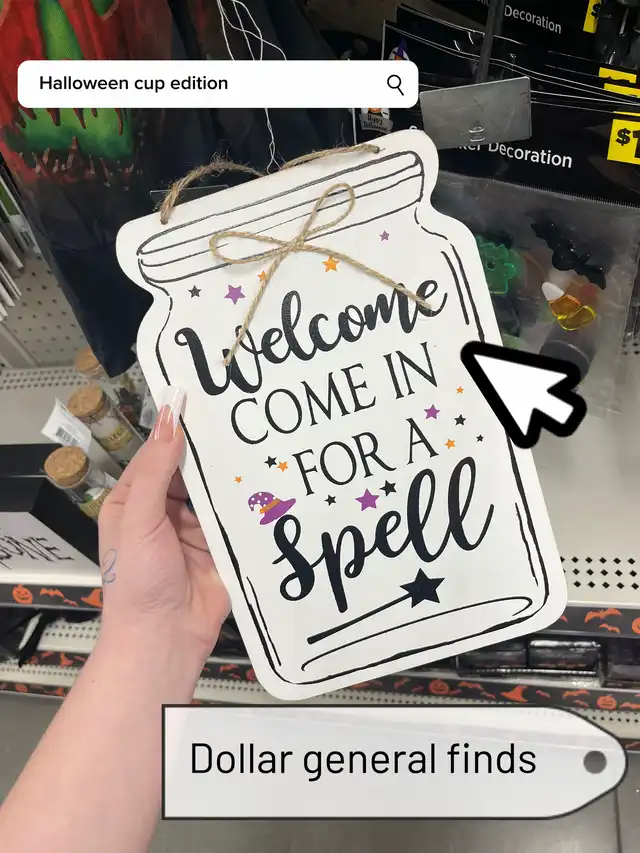 Decoration
Halloween cup edition
$1
Decoration
Welcome
COME IN
FOR A
Spell
Dollar general finds